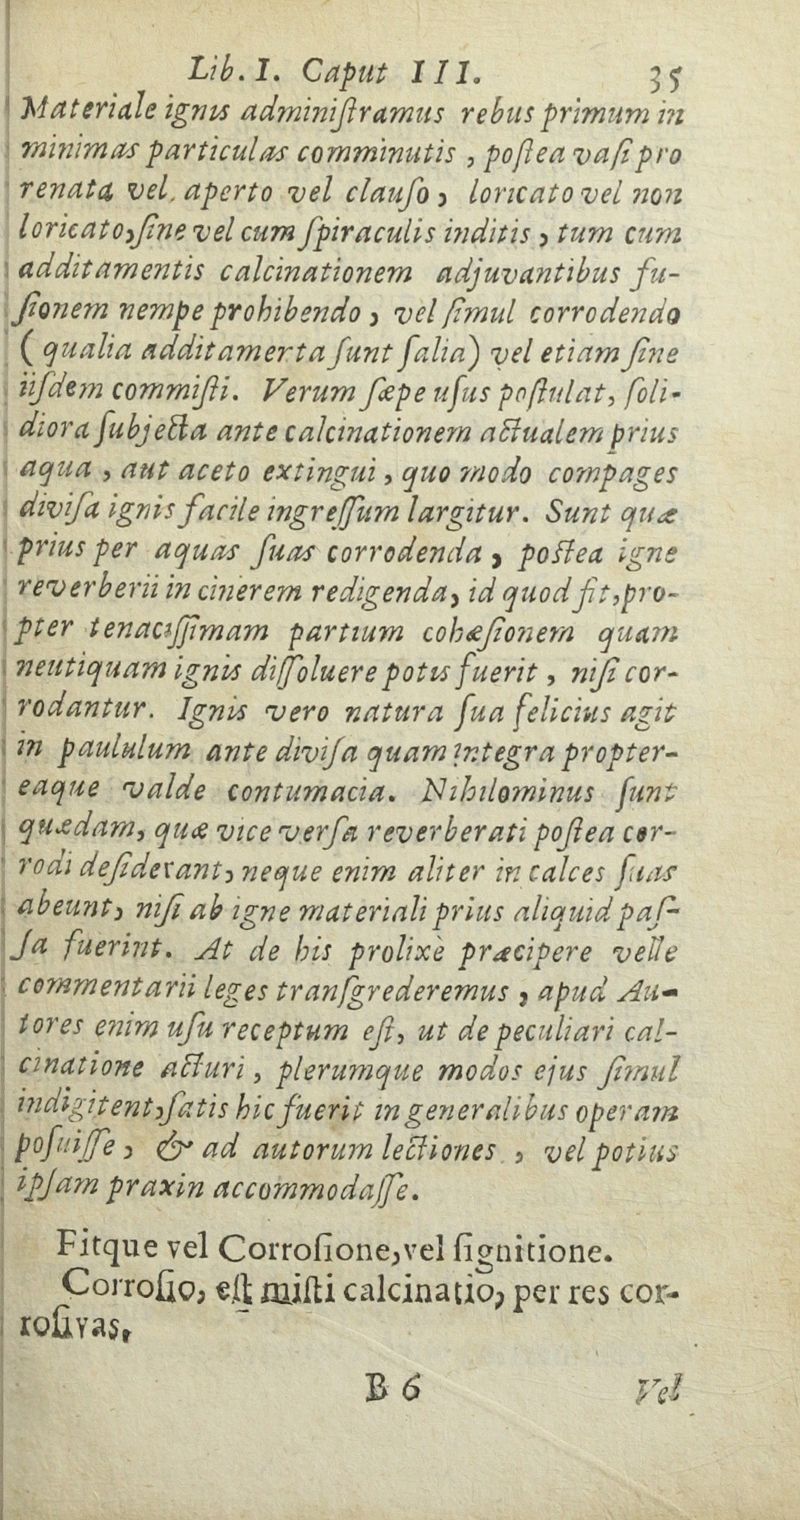 Lib. I. Caput III. 35
Materiale ignis adminiſtramus rebus primum in
minimas particulas comminutis , poſtea vaſi pro
renata vel, aperto vel clauſo , loricato vel non
loricato,ſine vel cum ſpiraculis inditis , tum cum
additamentis calcinationem adjuvantibus fu-
ſionem nempe prohibendo , vel ſimul corrodendo
( qualia additamerta ſunt ſalia) vel etiam ſine
iiſdem commiſti. Verum ſæpe uſus poſtulat, ſoli-
diora ſubjecta ante calcinationem actualem prius
aqua , aut aceto extingui , quo modo compages
diviſa ignis facile ingreſſum largitur. Sunt quæ
prius per aquas ſuas corrodenda , poſtea igne
reverberii in cinerem redigenda, id quod fit,pro-
pter tenaciſſimam partium cohæſionem quam
neutiquam ignis diſſoluere potis fuerit , niſi cor-
rodantur. Ignis vero natura ſua felicius agit
in paululum ante diviſa quam integra propter-
eaque valde contumacia. Nihilominus ſunt
quædam, quæ vice verſa reverberati poſtea cor-
rodi deſiderant, neque enim aliter in calces ſuas
abeunt, niſi ab igne materiali prius aliquid paſ-
ſa fuerint. At de his prolixè præcipere velle
commentarii leges tranſgrederemus , apud Au-
tores enim uſu receptum eſt, ut de peculiari cal-
cinatione acturi , plerumque modos ejus ſimul
indigitent,ſatis hic fuerit in generalibus operam
poſuiſſe , & ad autorum lectiones , vel potius
ipſam praxin accommodaſſe.
Fitque vel Corroſione,vel ſignitione.
Corroſio, eſt miſti calcinatio, per res cor-
roſivas,
B 6 Vel